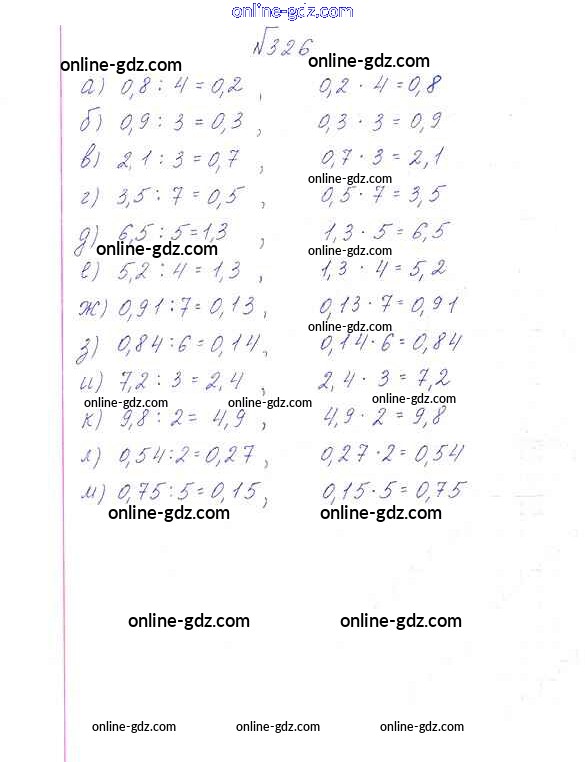 online-gdz.com
№326
online-gdz.com online-gdz.com
а) 0,8 : 4 = 0,2 , 0,2 · 4 = 0,8
б) 0,9 : 3 = 0,3 , 0,3 · 3 = 0,9
в) 2,1 : 3 = 0,7 , 0,7 · 3 = 2,1
online-gdz.com
г) 3,5 : 7 = 0,5 , 0,5 · 7 = 3,5
д) 6,5 : 5 = 1,3 , 1,3 · 5 = 6,5
online-gdz.com online-gdz.com
е) 5,2 : 4 = 1,3 , 1,3 · 4 = 5,2
ж) 0,91 : 7 = 0,13 , 0,13 · 7 = 0,91
online-gdz.com
з) 0,84 : 6 = 0,14 , 0,14 · 6 = 0,84
и) 7,2 : 3 = 2,4 , 2,4 · 3 = 7,2
online-gdz.com online-gdz.com online-gdz.com
к) 9,8 : 2 = 4,9 , 4,9 · 2 = 9,8
л) 0,54 : 2 = 0,27 , 0,27 · 2 = 0,54
м) 0,75 : 5 = 0,15 , 0,15 · 5 = 0,75
online-gdz.com online-gdz.com
online-gdz.com online-gdz.com
online-gdz.com online-gdz.com online-gdz.com